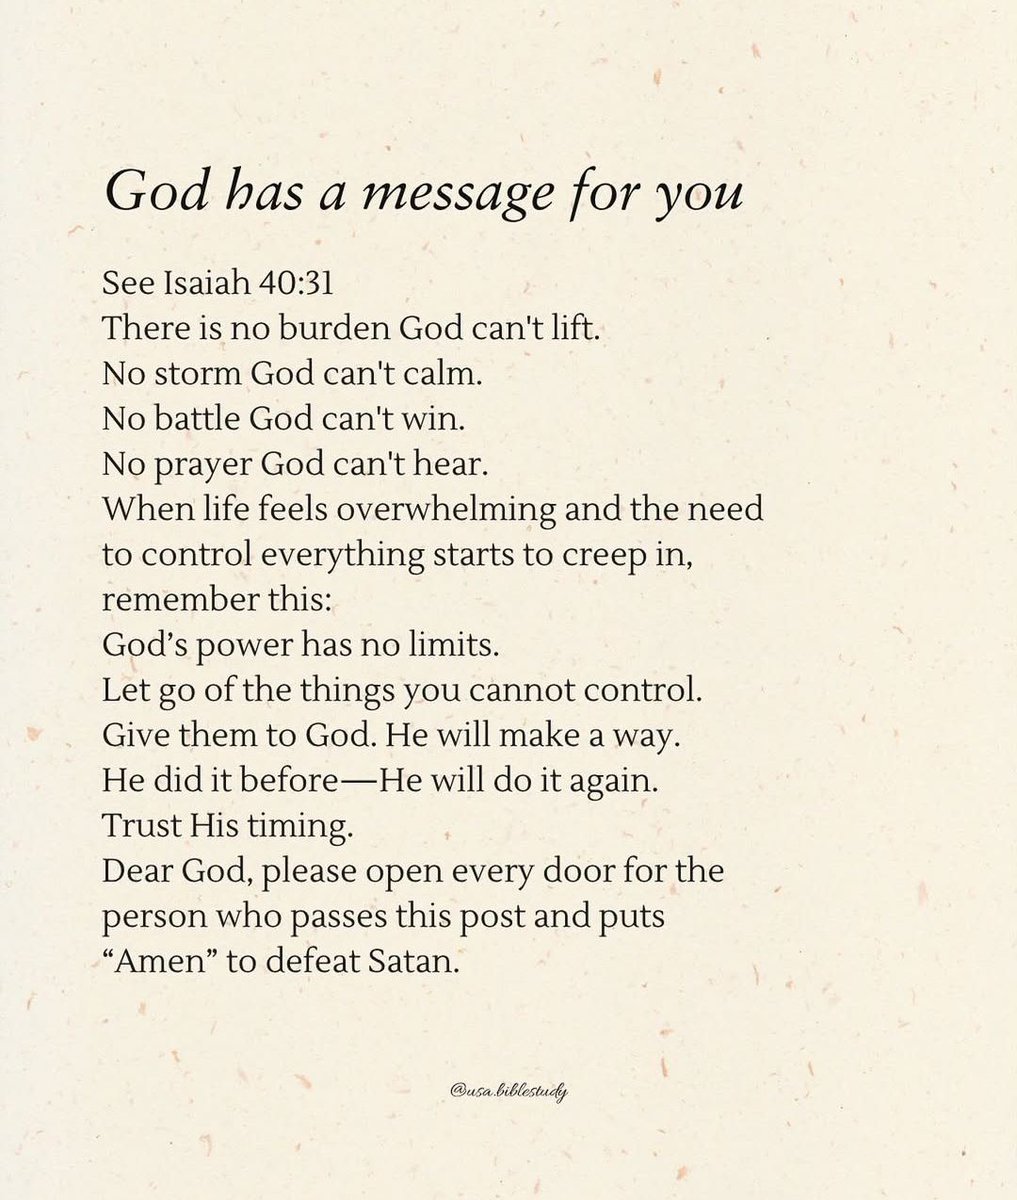 God has a message for you
See Isaiah 40:31
There is no burden God can't lift.
No storm God can't calm.
No battle God can't win.
No prayer God can't hear.
When life feels overwhelming and the need
to control everything starts to creep in,
remember this:
God’s power has no limits.
Let go of the things you cannot control.
Give them to God. He will make a way.
He did it before—He will do it again.
Trust His timing.
Dear God, please open every door for the
person who passes this post and puts
“Amen” to defeat Satan.
@usa.biblestudy